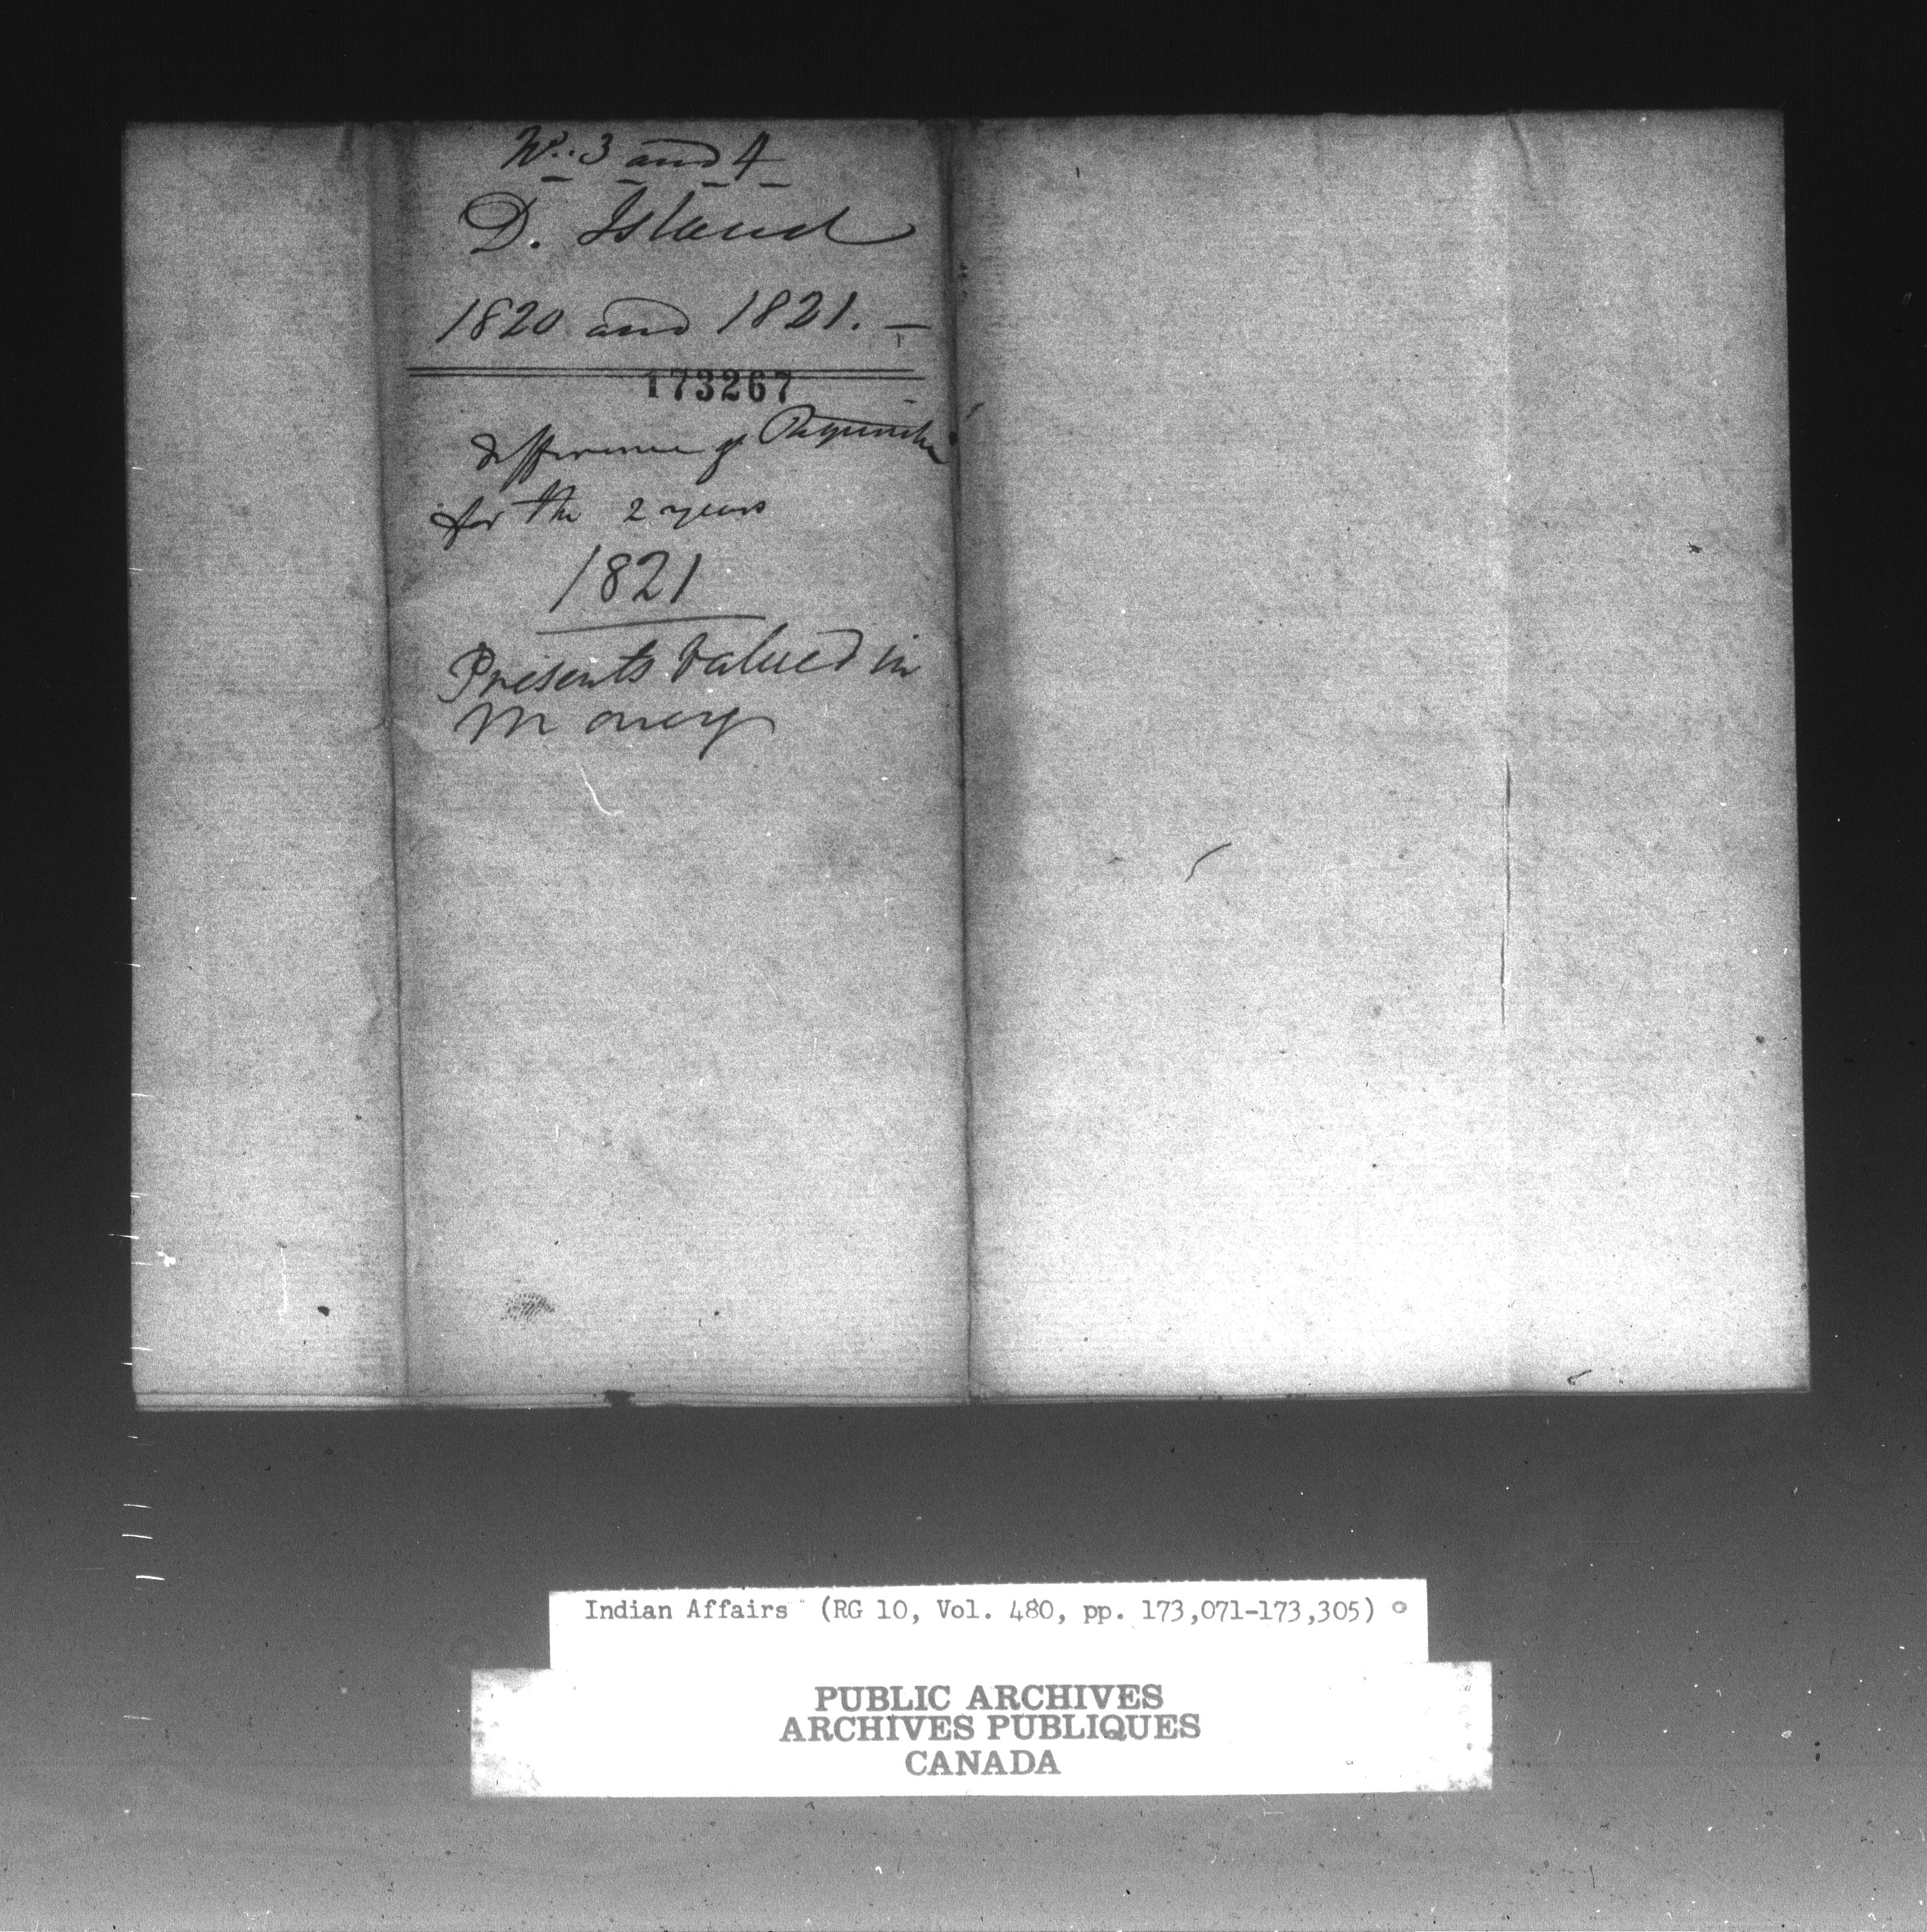 No. 3 and 4
D. Island
1820 and 1821. —
173267
difference of
for the 2 years
1821
Presents valued in
Money
Indian Affairs (RG 10, Vol. 480, pp. 173,071-173,305)
PUBLIC ARCHIVES
ARCHIVES PUBLIQUES
CANADA